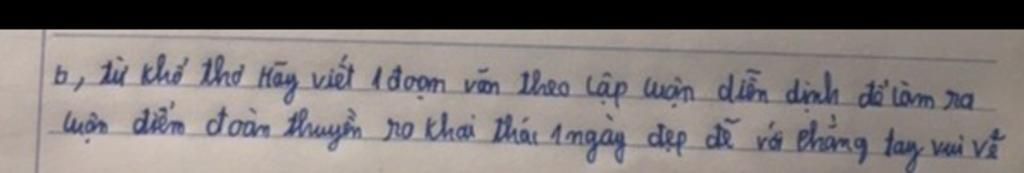 b, từ khổ thơ Hãy viết 1 đoạn văn theo lập luận diễn dịnh để làm ra
luận điểm đoàn thuyền ro khai thác 1 ngày đẹp đẽ với chẳng tay vui vẽ